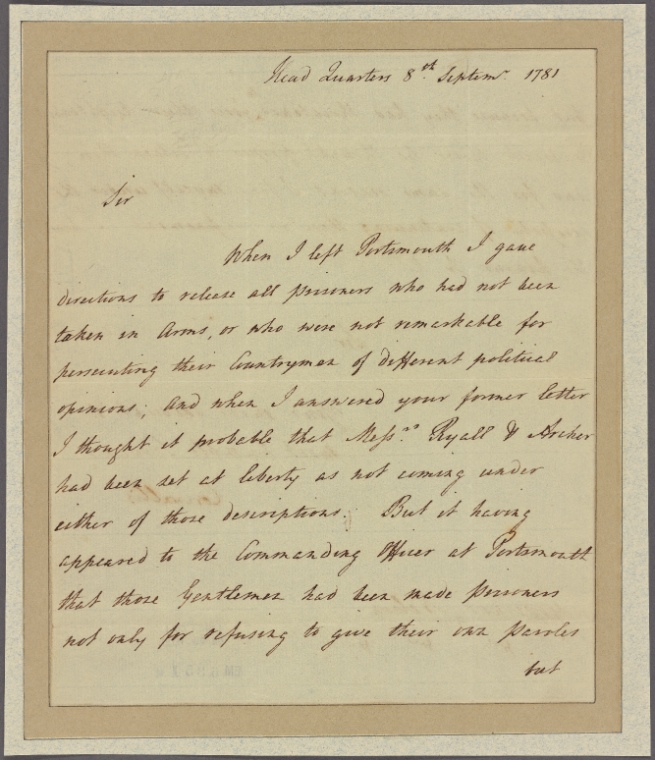 Head Quarters 8th Septemr. 1781
Sir
When I left Portsmouth I gave
directions to release all prisoners who had not been
taken in Arms, or who were not remarkable for
persecuting their Countrymen of different political
opinions; and when I answered your former letter
I thought it probable that Messrs. Ryall & Archer
had been set at liberty as not coming under
either of those descriptions. But it having
appeared to the Commanding Officer at Portsmouth
that those Gentlemen had been made prisoners
not only for refusing to give their own paroles
but